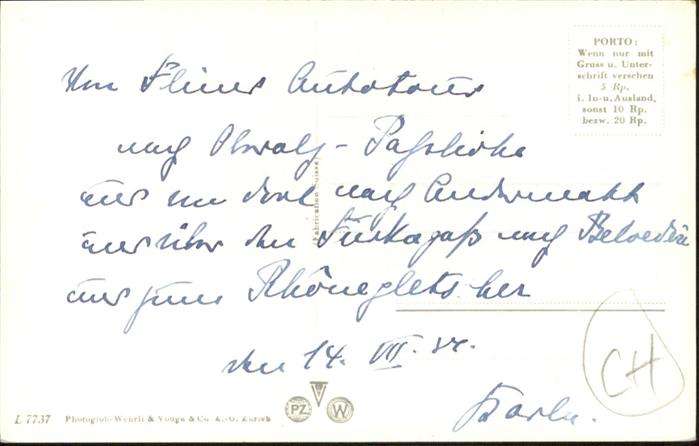 PORTO:
Wenn nur mit
Gruss u. Unter-
schrift versehen
5 Rp.
i. In-u. Ausland,
sonst 10 Rp.
bezw. 20 Rp.
Von Flims Autotour
nach Oberalp - Passhöhe
und von dort nach Andermatt
und über den Furkapaß nach Belvedère
und zum Rhônegletscher
den 14. VII. 54.
Fabrication Suisse
CH
L 7737 Photoglob-Wehrli & Vouga & Co. A.-G. Zürich
PZ W